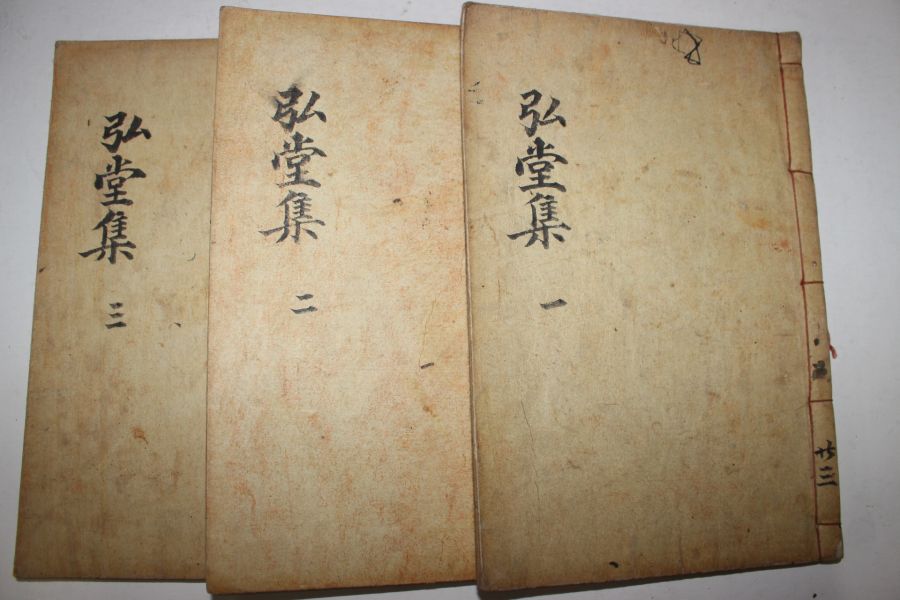 弘堂集 一
弘堂集 二
弘堂集 三
共三